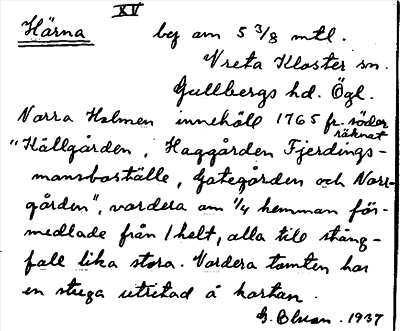 XV
Härna by om 5 3/8 mtl.
Vreta Kloster sn.
Gullbergs hd. Ögl.
Norra Holmen innehöll 1765 fr. söder räknat
"Källgården, Haggården Fjerdings-
mansboställe, Gategården och Norr-
gården", vardera om 1/4 hemman för-
medlade från 1 helt, alla till stång-
fall lika stora. Vardera tomten har
en stuga utritad å kartan.
G. Ekman. 1937